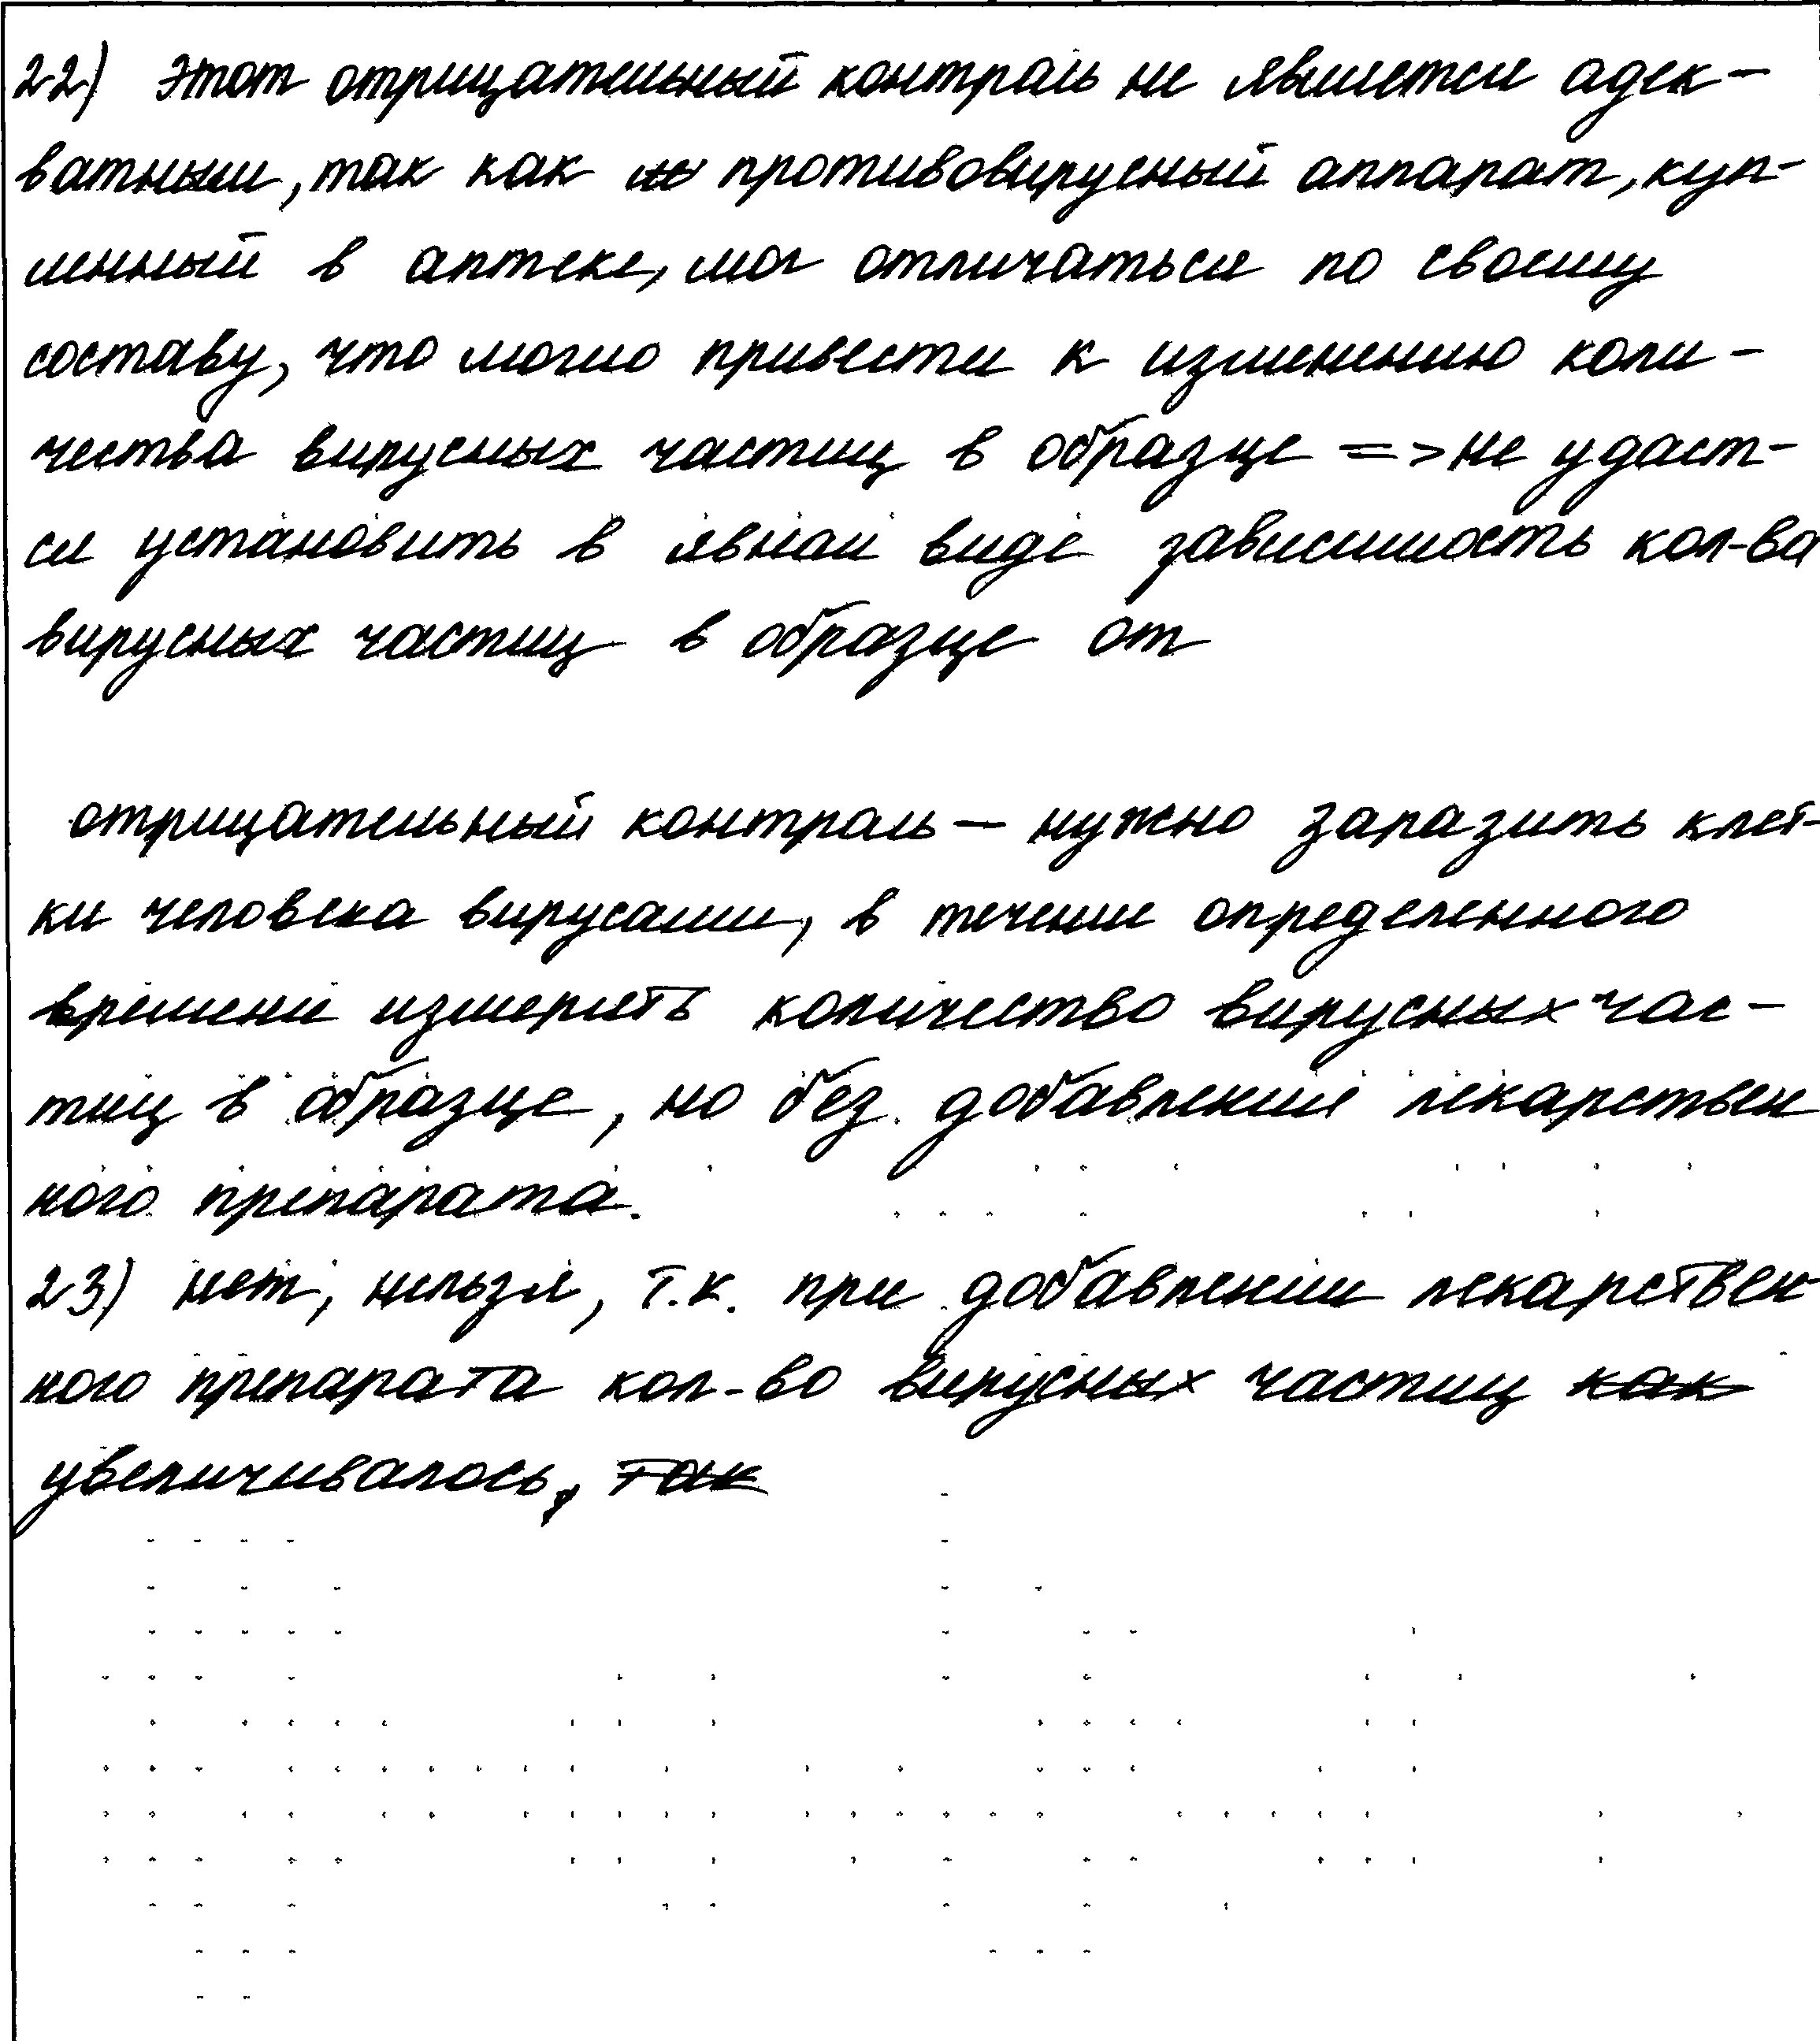 22) Этот отрицательный контроль не является адек-
ватным, так как противовирусный аппарат, куп-
ленный в аптеке, мог отличаться по своему
составу, что могло привести к изменению коли-
чества вирусных частиц в образце => не удаст-
ся установить в явном виде зависимость кол-ва
вирусных частиц в образце от
отрицательный контроль — нужно заразить клет-
ки человека вирусами, в течении определенного
времени измерить количество вирусных час-
тиц в образце, но без добавления лекарствен
ного препарата.
23) нет, нельзя, т.к. при добавлении лекарствен
ного препарата кол-во вирусных частиц как
увеличивалось, так